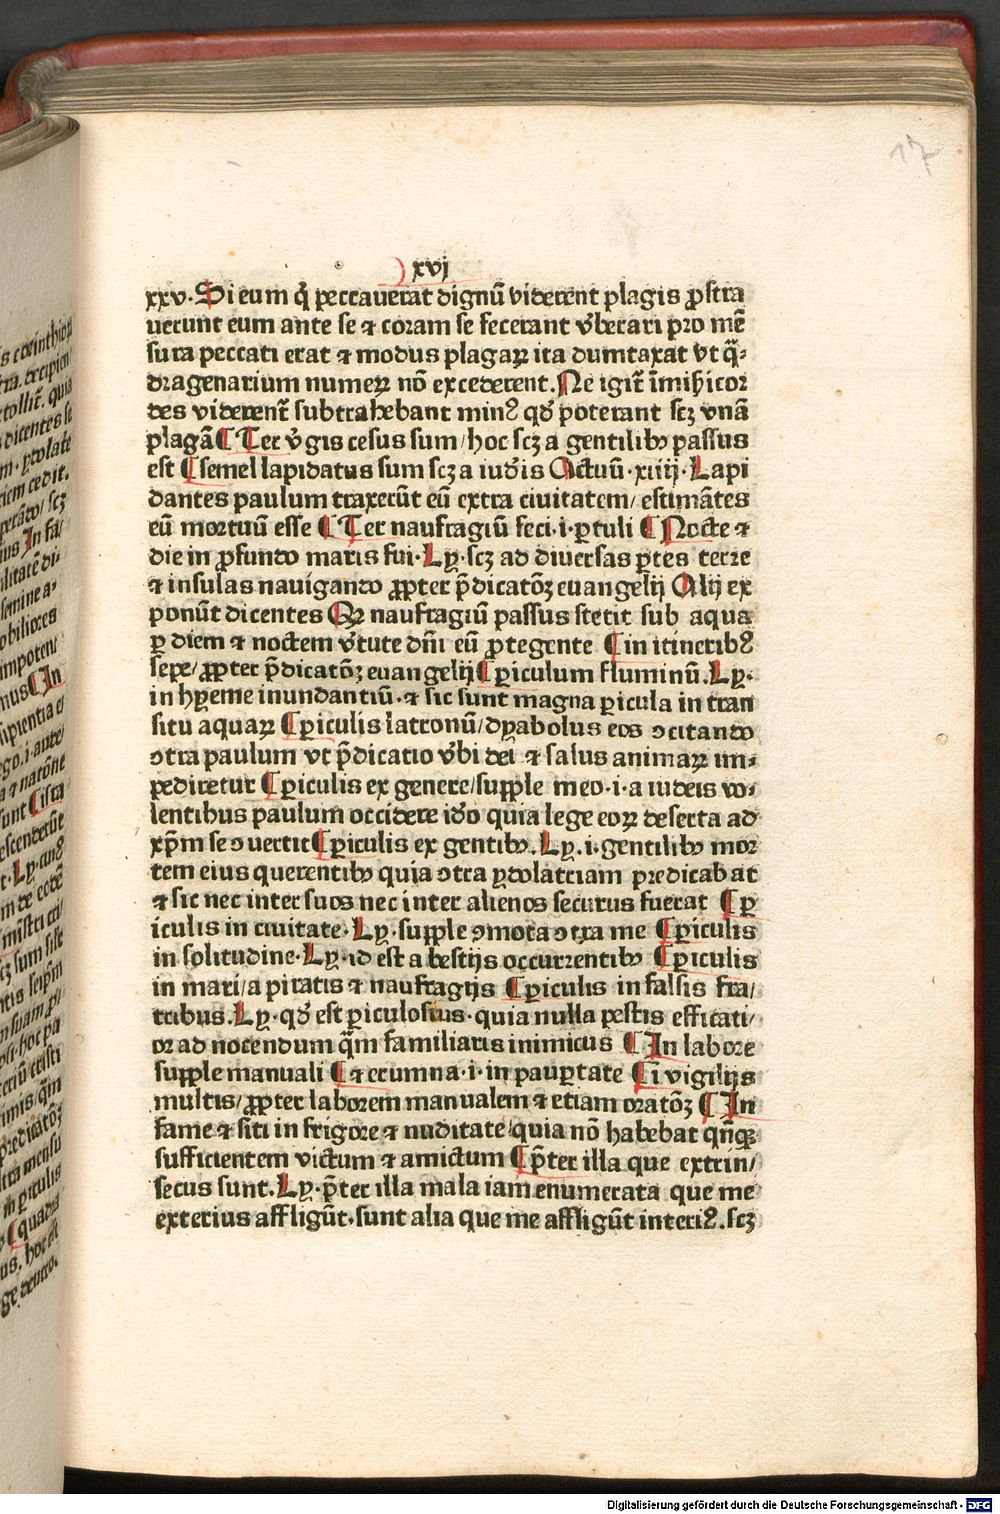 17
xvj
xxv. Si eum q̄ peccauerat dignū viderent plagis ꝓstra
uerunt eum ante se ⁊ coram se fecerant v̄berari pro mē
sura peccati erat ⁊ modus plagaꝝ ita dumtaxat vt q̄⸗
dragenarium numeꝝ nō excederent. Ne igit̄ īmiẖicor
des viderent̄ subtrahebant minꝰ qd̓ poterant scꝫ vnā
plagā ¶ Ter v̓gis cesus sum/ hoc scꝫ a gentilibꝰ passus
est ¶ semel lapidatus sum scꝫ a iud̓is Actuū .xiiij. Lapi
dantes paulum traxerūt eū extra ciuitatem/ estimātes
eū mortuū esse ¶ Ter naufragiū feci .i. ꝑtuli ¶ Nocte ⁊
die in ꝓfundo maris fui. Ly. scꝫ ad diuersas ꝑtes terre
⁊ insulas nauigando ꝓpter p̄dicatōꝫ euangelij Alij ex
ponūt dicentes Qꝫ naufragiū passus stetit sub aqua
ꝑ diem ⁊ noctem v̓tute dn̄i eū ꝓtegente ¶ in itineribꝰ
sepe/ ꝓpter p̄dicatōꝫ euangelij ¶ ꝑiculum fluminū. Ly.
in hyeme inundantiū. ⁊ sic sunt magna ꝑicula in tran
situ aquaꝝ ¶ ꝑiculis latronū/ dyabolus eos ꝯcitando
ꝯtra paulum vt p̄dicatio v̓bi dei ⁊ salus animaꝝ im⸗
pediretur ¶ ꝑiculis ex genere/ supple meo .i. a iudeis vo⸗
lentibus paulum occidere id̓o quia lege eoꝝ deserta ad
xp̄m se ꝯuertit ¶ ꝑiculis ex gentibꝰ. Ly. .i. gentilibꝰ mor
tem eius querentibꝰ quia ꝯtra ydolatriam predicabat
⁊ sic nec inter suos nec inter alienos securus fuerat ¶ ꝑ
iculis in ciuitate. Ly. supple ꝯmota ꝯtra me ¶ ꝑiculis
in solitudine. Ly. id est a bestijs occurrentibꝰ ¶ ꝑiculis
in mari/ a piratis ⁊ naufragijs ¶ ꝑiculis in falsis fra/
tribus. Ly. qd̓ est ꝑiculosius. quia nulla pestis efficati/
or ad nocendum q̄m familiaris inimicus ¶ In labore
supple manuali ¶ ⁊ erumna .i. in pauꝑtate ¶ ī vigilijs
multis/ ꝓpter laborem manualem ⁊ etiam oratōꝫ ¶ In
fame ⁊ siti in frigore ⁊ nuditate/ quia nō habebat qn̄qꝫ
sufficientem victum ⁊ amictum ¶ p̄ter illa que extrin/
secus sunt. Ly. p̄ter illa mala iam enumerata que me
exterius affligūt. sunt alia que me affligūt interiꝰ. scꝫ
Digitalisierung gefördert durch die Deutsche Forschungsgemeinschaft - DFG